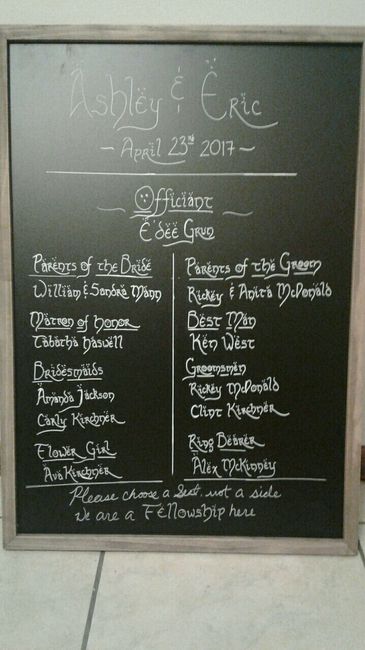 Ashley & Eric
~ April 23rd 2017 ~
Officiant
E'dee Grun
Parents of the Bride
William & Sandra Mann
Matron of honor
Tabatha Haswell
Bridesmaids
Amanda Jackson
Carly Kirchner
Flower Girl
Ava Kirchner
Parents of the Groom
Rickey & Anita McDonald
Best Man
Ken West
Groomsmen
Rickey McDonald
Clint Kirchner
Ring Bearer
Alex McKinney
Please choose a Seat, not a side
we are a Fellowship here